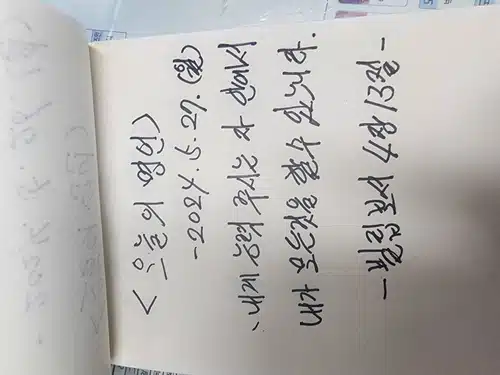 <오늘의 명언>
-2024.5.27.(월)
、내게 능력 주시는 자 안에서
내가 모든것을 할수 있느니라.
-빌립보서 4장 13절-